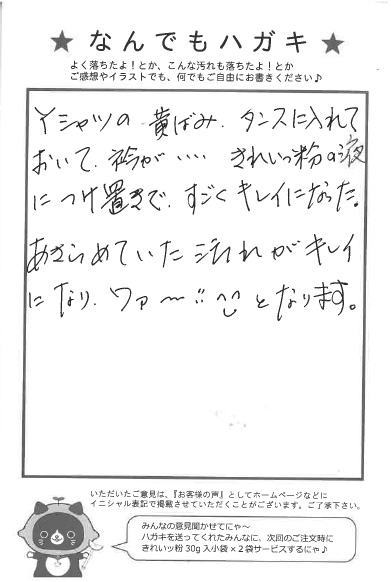 ★ なんでもハガキ ★
よく落ちたよ！とか、こんな汚れも落ちたよ！とか
ご感想やイラストでも、何でもご自由にお書きください♪
Yシャツの 黄ばみ、タンスに入れて
おいて、衿が‥‥ きれいっ粉の液
につけ置きで、すごくキレイになった。
あきらめていた汚れがキレイ
になり、ワァ〜‼ となります。
いただいたご意見は、『お客様の声』としてホームページなどに
イニシャル表記で掲載させていただくことがございます。ご了承下さい。
みんなの意見聞かせてにゃ〜
ハガキを送ってくれたみんなに、次回のご注文時に
きれいッ粉 30g 入小袋×2袋サービスするにゃ♪